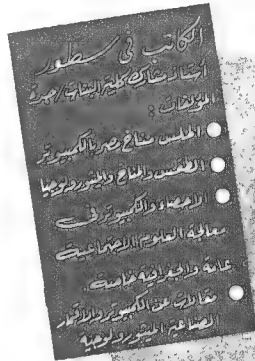 الكاتب فى سطور
أستاذ مشارك كلية البنات / جدة
المؤلفات :
اطلس مناخ مصر بالكمبيوتر
الطقس والمناخ والميتورولوجيا
الاحصاء والكمبيوتر فى
معالجة العلوم الاجتماعية
عامة والجغرافية خاصة .
مقالات عن الكمبيوتر والاقمار
الصناعية الميتورولوجية